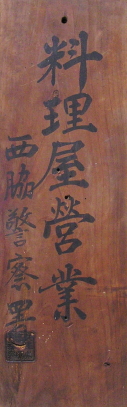 料理屋營業
西脇警察署